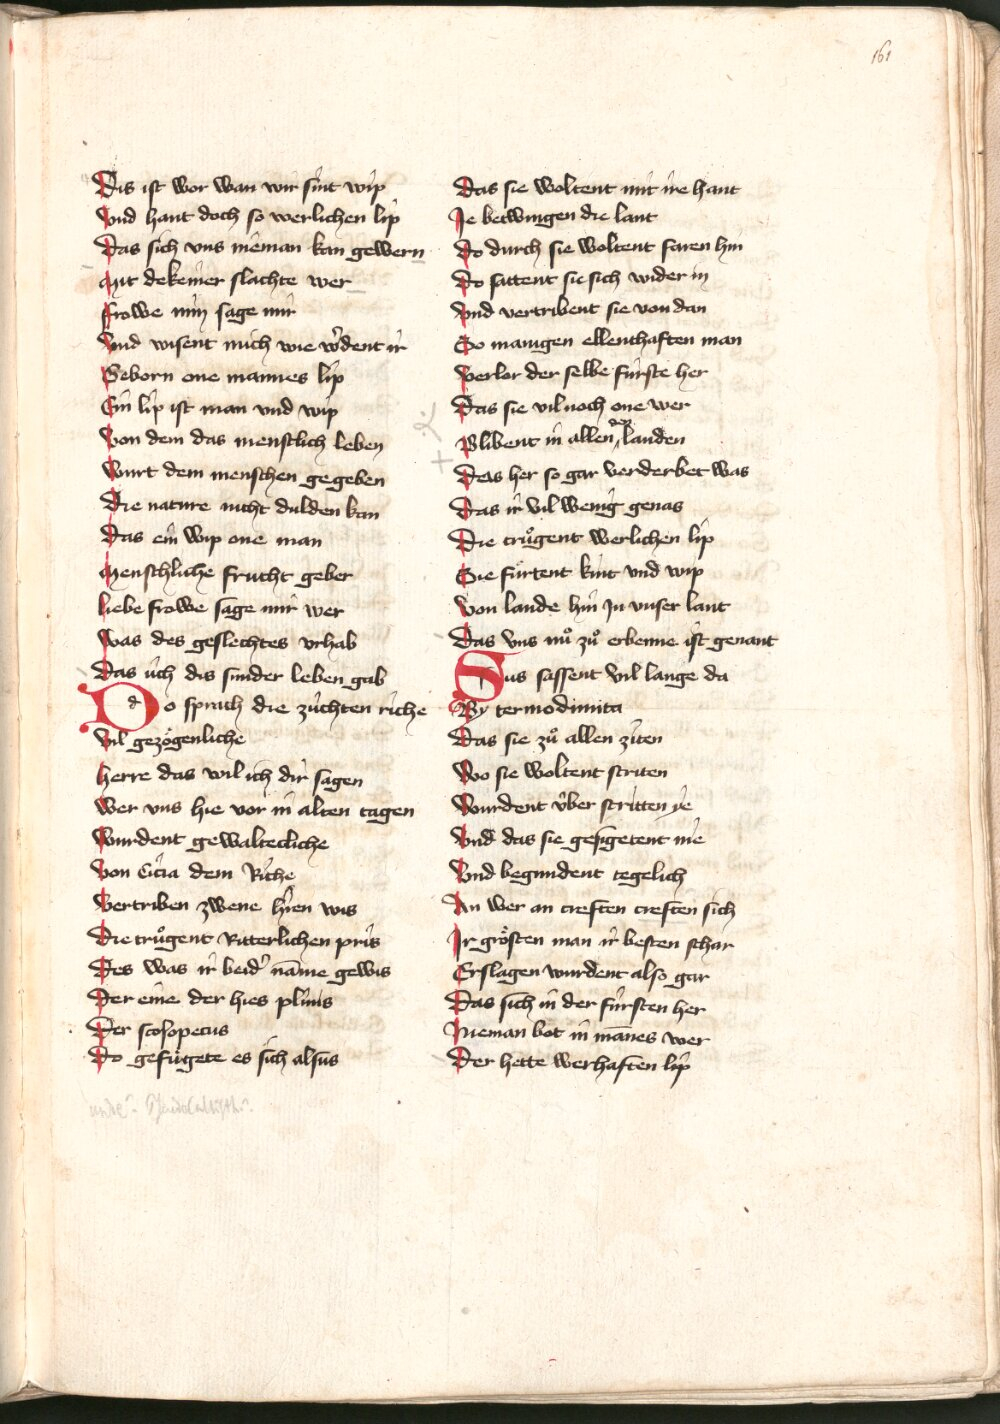 161
Dis ist wor wan wir sint wip
Vnd hant doch so werlichen lip
Das sich vns nieman kan gewern
Mit dekeiner slachte wer
Frowe min sage mir
Vnd wisent mich wie wͦdent ir
Geborn one mannes lip
Ein lip ist man vnd wip
Von dem das menschlich leben
Wurt dem menschen gegeben
Die nature nicht dulden kan
Das ein wip one man
Menschliche frucht geber
Liebe frowe sage mir wer
Was des geslechtes vrhab
Das úch dis sunder leben gab
Do sprach die zúchten riche
Vil gezögenliche
Herre das wil ich dir sagen
Wer vns hie vor in alten tagen
Wurdent gewaltecliche
Von Cicia dem Riche
Vertriben zwene h'ren wis
Die truͦgent Ritterlichen pris
Des was ir beid' name gewis
Der eine der hies plinis
Der scolopetus
Do gefuͤgete es sich alsus
Das sie woltent mit ire hant
Je betwingen die lant
Do durch sie woltent faren hin
Do sattent sie sich wider in
Vnd vertribent sie von dan
So manigen ellenthaften man
Verlor der selbe fúrste her
Das sie vil noch one wer
Blibent in allen den landen
Das her so gar verderbet was
Das ir vil wenig genas
Die truͦgent werlichen lip
Sie fuͤrtent kint vnd wip
Von lande hin Jn vnser lant
Das vns nuͦ zuͦ erbenne ist genant
Sus sassent vil lange da
By termodimita
Das sie zuͦ allen ziten
Wo sie woltent striten
Wurdent v́ber stritten ye
Vnd das sie gesigetent nie
Vnd begundent tegelich
An wer an creften creften sich
Jr grösten man ir besten schar
Erslagen wurdent also gar
Das sich in der fúrsten her
Nieman bot in mannes wer
Der hette werhaften lip